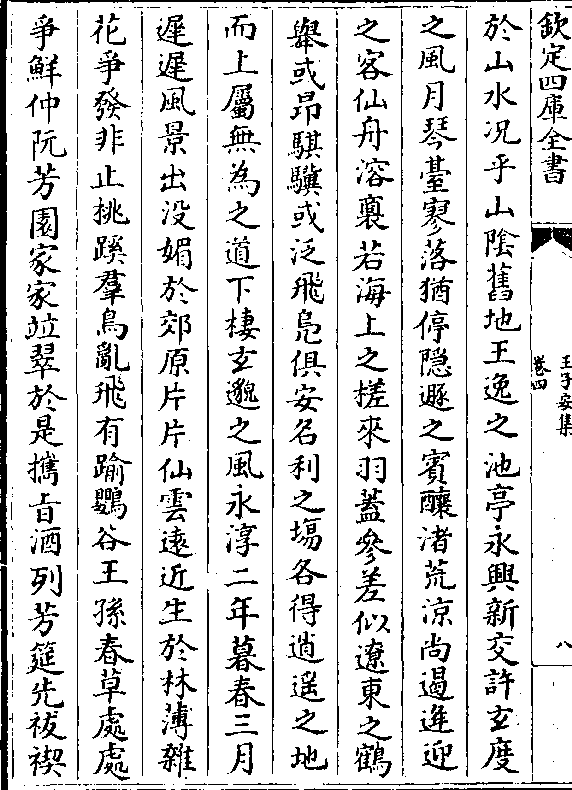 欽定四庫全書
王子安集
卷四
八
於山水况乎山隂舊地王逸之池亭永興新交許𤣥度
之風月琴臺寥落猶停隠遯之賓釀渚荒涼尚遏逢迎
之客仙舟溶裔若海上之槎來羽蓋參差似遼東之鶴
舉或昂騏驥或泛飛鳬俱安名利之塲各得逍遥之地
而上屬無為之道下棲𤣥邈之風永淳二年暮春三月
遲遲風景出没媚於郊原片片仙雲遠近生於林薄雜
花爭發非止挑蹊羣鳥亂飛有踰鸎谷王孫春草處處
爭鮮仲阮芳園家家竝翠於是擕㫖酒列芳筵先祓禊